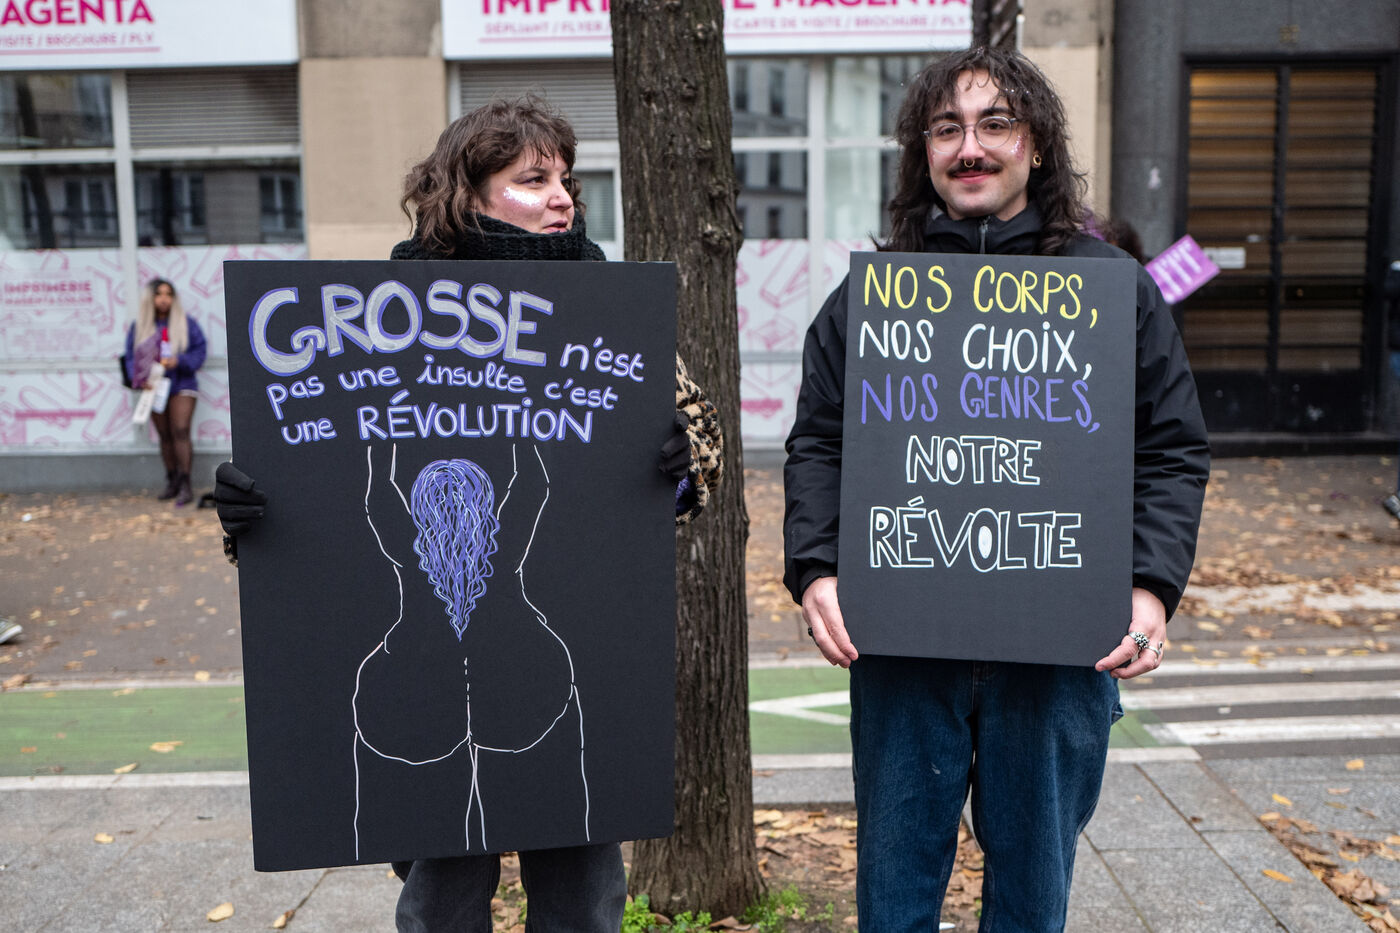 AGENTA
VISITE / BROCHURE / PLV
IMPRIMERIE MAGENTA
DÉPLIANT / FLYER / CARTE DE VISITE / BROCHURE / PLV
IMPRIMERIE
GROSSE n'est
pas une insulte c'est
une RÉVOLUTION
NOS CORPS,
NOS CHOIX,
NOS GENRES,
NOTRE
RÉVOLTE